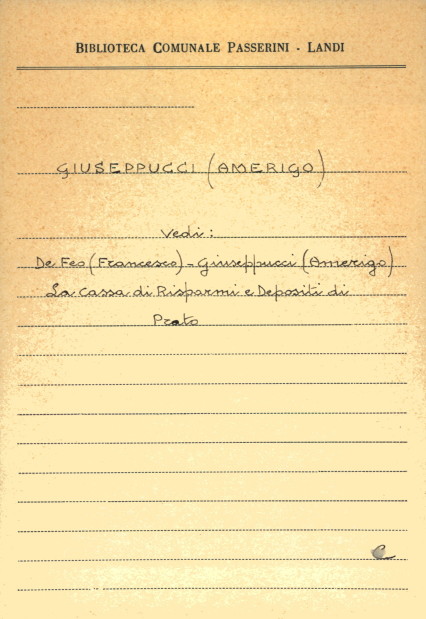 BIBLIOTECA COMUNALE PASSERINI - LANDI
GIUSEPPUCCI (AMERIGO)
Vedi:
De Feo (Francesco) - Giuseppucci (Amerigo)
La Cassa di Risparmi e Depositi di
Prato
C